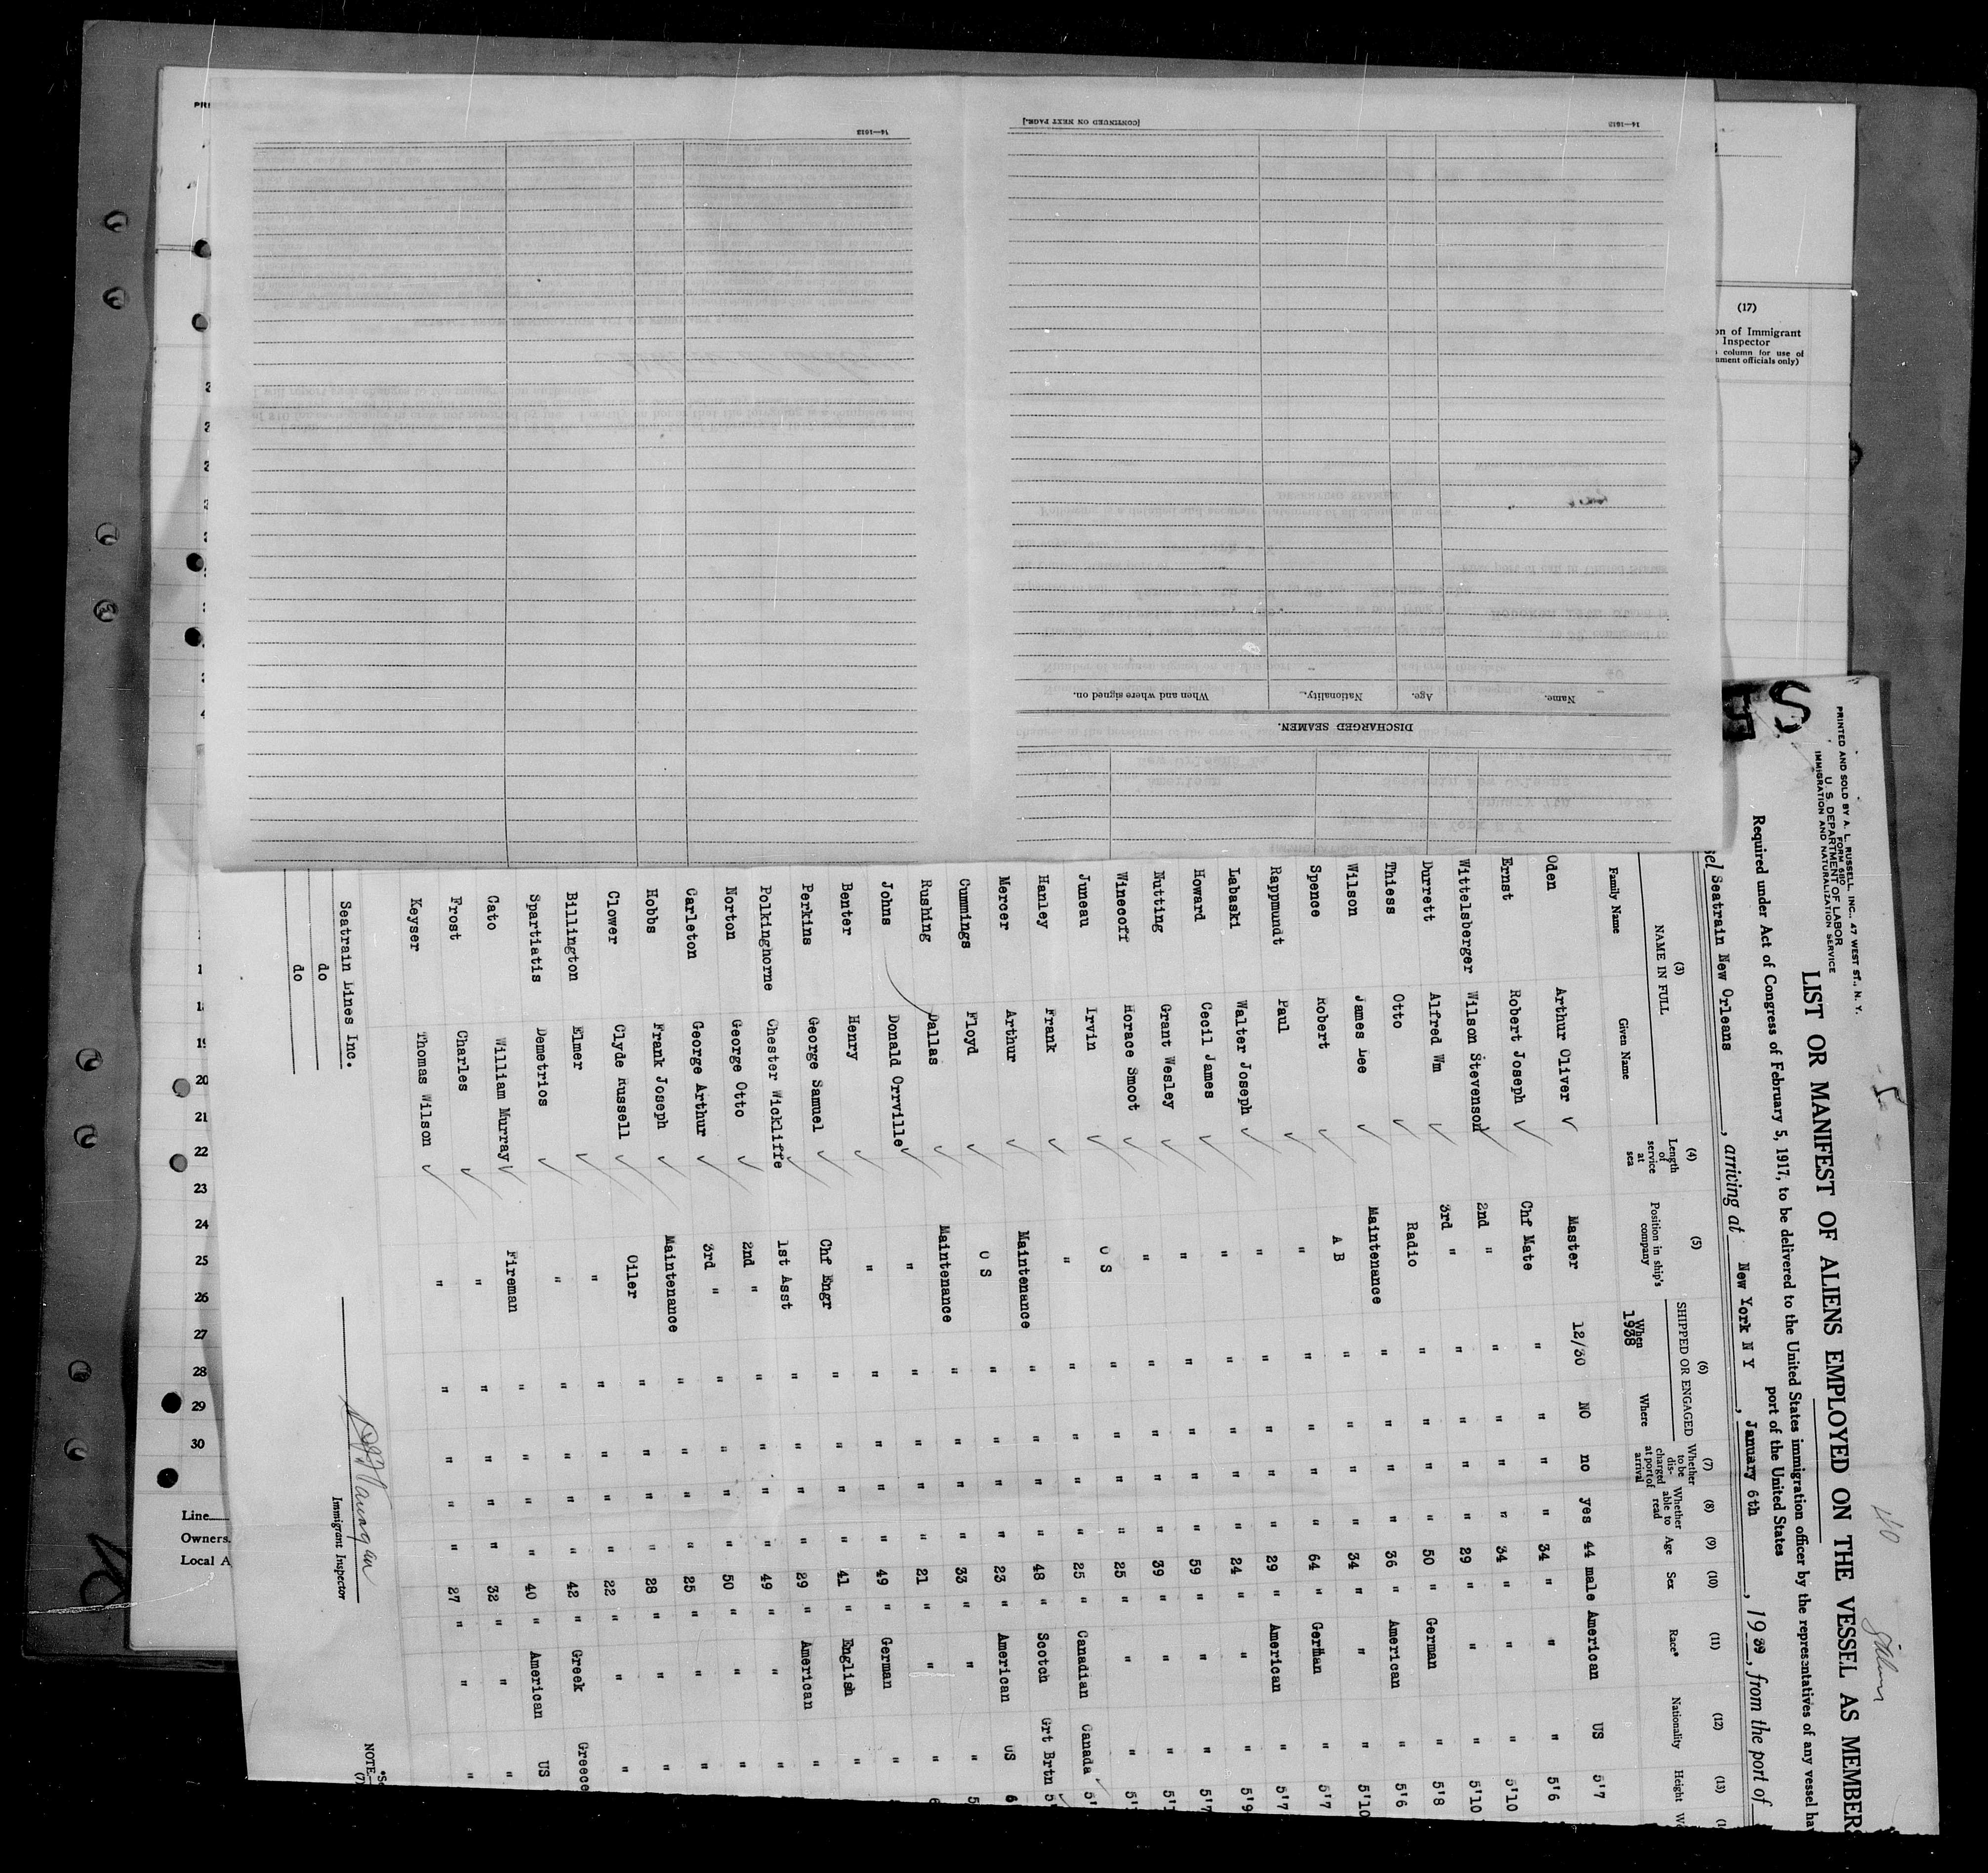 PRINTED AND SOLD BY A. L. RUSSELL, INC., 47 WEST ST., N. Y.
FORM 680
U. S. DEPARTMENT OF LABOR
IMMIGRATION AND NATURALIZATION SERVICE
LIST OR MANIFEST OF ALIENS EMPLOYED ON THE VESSEL AS MEMBERS
Required under Act of Congress of February 5, 1917, to be delivered to the United States immigration officer by the representatives of any vessel
port of the United States
Seatrain New Orleans, arriving at New York N Y, January 6th, 1939, from the port of
(3) NAME IN FULL
Family Name Given Name
(4) Length of service at sea
(5) Position in ship's company
(6) SHIPPED OR ENGAGED
When 1938 Where
(7) Whether to be discharged at port of arrival
(8) Whether able to read
(9) Age
(10) Sex
(11) Race*
(12) Nationality
(13) Height
Oden Arthur Oliver ✓ Master 12/30 NO no yes 44 male American US 5'7
Ernst Robert Joseph ✓ Chf Mate " " " " 34 " " " 5'6
Wittelsberger Wilson Stevenson ✓ 2nd " " " " " 34 " " " 5'10
Durrett Alfred Wm ✓ 3rd " " " " " 29 " " " 5'10
Thiess Otto ✓ Radio " " " " 50 " German " 5'8
Wilson James Lee ✓ Maintenance " " " " 36 " American " 5'6
Spence Robert ✓ A B " " " " 34 " " " 5'10
Rappmundt Paul ✓ " " " " " 64 " German " 5'7
Labaski Walter Joseph ✓ " " " " " 29 " American " 5'7
Howard Cecil James ✓ " " " " " 24 " " " 5'9
Nutting Grant Wesley ✓ " " " " " 59 " " " 5'7
Winecoff Horace Smoot ✓ " " " " " 39 " " "
Juneau Irvin ✓ O S " " " " 25 " " "
Hanley Frank ✓ " " " " " 25 " Canadian Canada
Mercer Arthur ✓ Maintenance " " " " 48 " Scotch Grt Brtn
Cummings Floyd ✓ O S " " " " 23 " American US
Rushing Dallas ✓ Maintenance " " " " 33 " " "
Johns Donald Orville ✓ " " " " " 21 " " "
Benter Henry ✓ " " " " " 49 " German "
Perkins George Samuel ✓ Chf Engr " " " " 41 " English "
Polkinghorne Chester Wickliffe ✓ 1st Asst " " " " 29 " American "
Norton George Otto ✓ 2nd " " " " " 49 " " "
Carleton George Arthur ✓ 3rd " " " " " 50 " " "
Hobbs Frank Joseph ✓ Maintenance " " " " 25 " " "
Clower Clyde Russell ✓ Oiler " " " " 28 " " "
Billington Elmer ✓ " " " " " 22 " " "
Spartiatis Demetrios ✓ " " " " " 42 " Greek Greece
Cato William Murray ✓ Fireman " " " " 40 " American US
Frost Charles ✓ " " " " " 32 " " "
Keyser Thomas Wilson ✓ " " " " " 27 " " "
Seatrain Lines Inc.
do
do
Immigrant Inspector
NOTE.
[CONTINUED ON NEXT PAGE.]
14—1013
14—1013
Name. Age. Nationality. When and where signed on.
DISCHARGED SEAMEN.
(17)
on of Immigrant
Inspector
column for use of
nment officials only)
19
20
21
22
23
24
25
26
27
28
29
30
Line
Owners
Local A